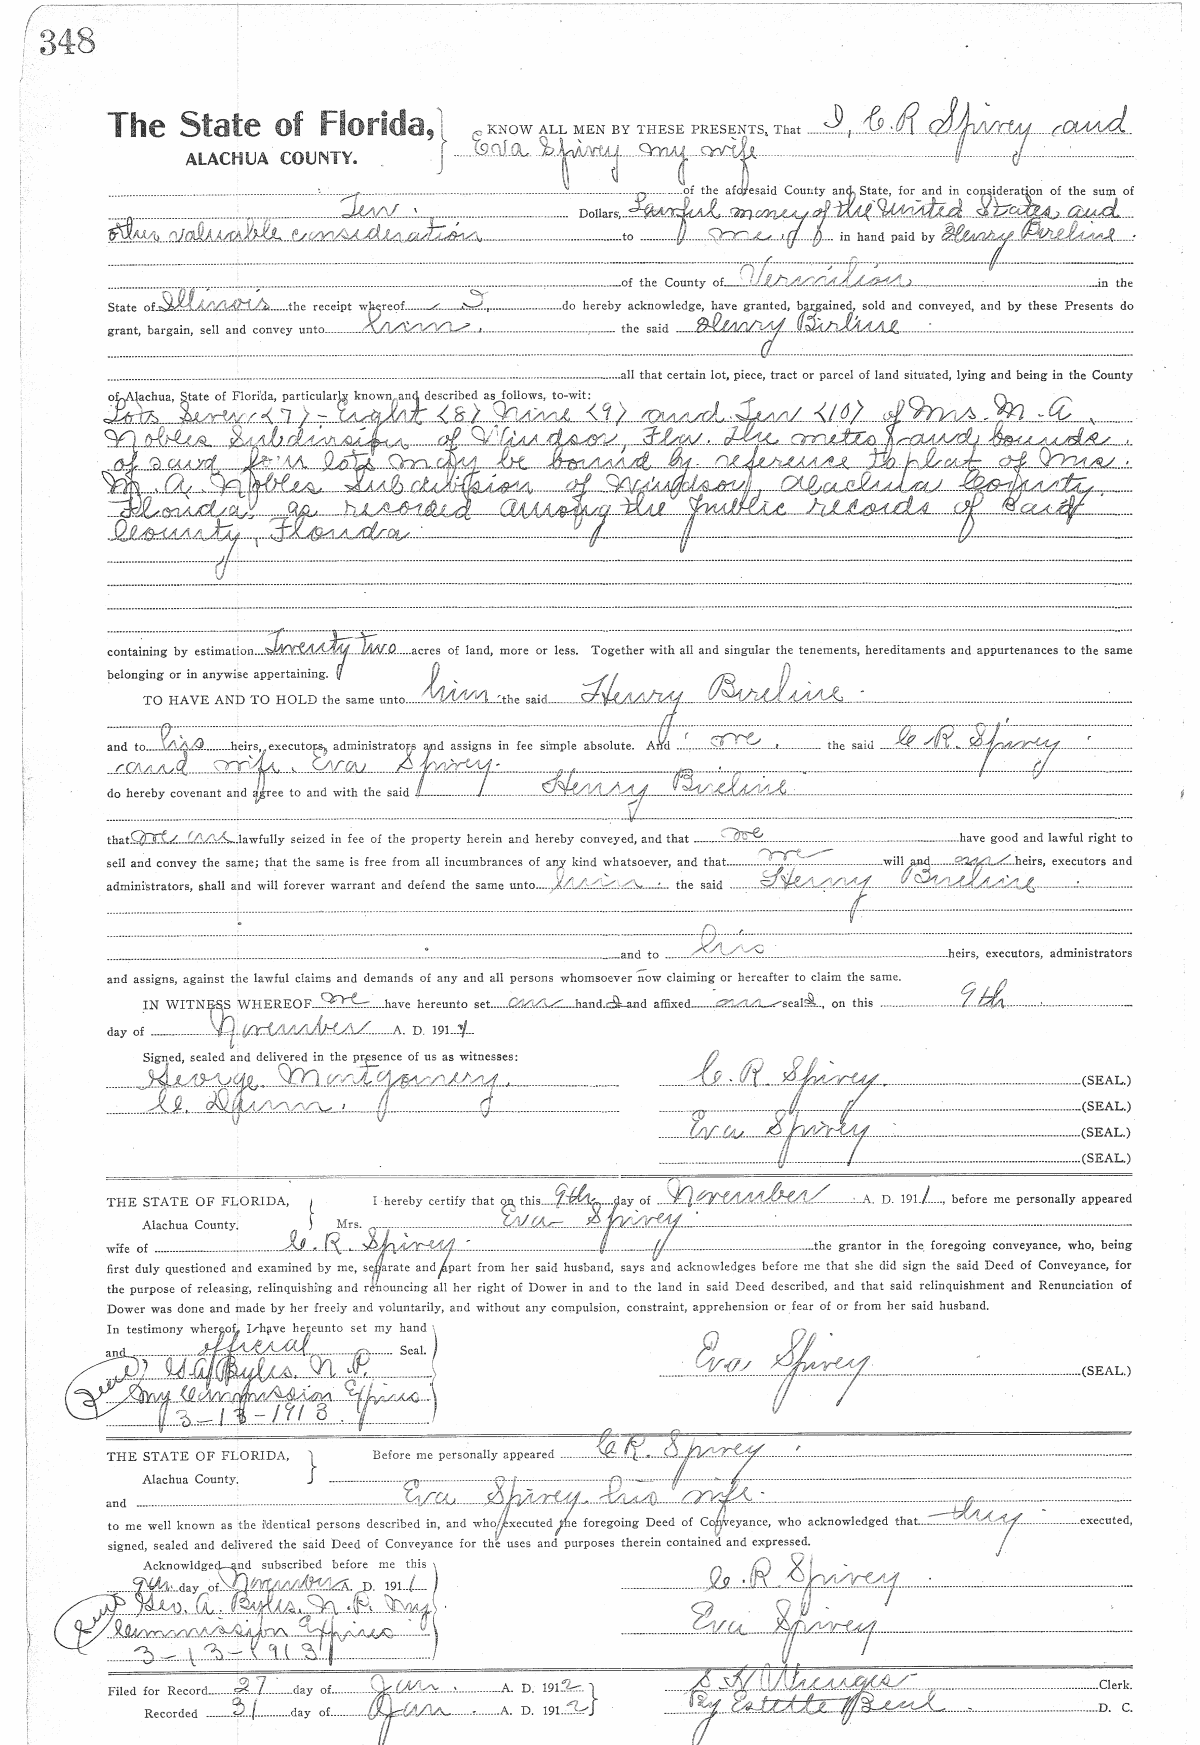 348
The State of Florida, KNOW ALL MEN BY THESE PRESENTS, That I, C. R Spivey and
ALACHUA COUNTY. Eva Spivey my wife
of the aforesaid County and State, for and in consideration of the sum of
Ten Dollars, Lawful money of the United States and
other valuable consideration to me in hand paid by Henry Bireline
of the County of Vermilion in the
State of Illinois the receipt whereof I do hereby acknowledge, have granted, bargained, sold and conveyed, and by these Presents do
grant, bargain, sell and convey unto him, the said Henry Birline
all that certain lot, piece, tract or parcel of land situated, lying and being in the County
of Alachua, State of Florida, particularly known and described as follows, to-wit:
Lots Seven (7) - Eight (8) Nine (9) and Ten (10) of Mrs. M. A.
Nobles Subdivision of Windsor, Fla. The metes and bounds
of said four lots may be bound by reference to plat of Mrs.
M. A. Nobles Subdivision of Windsor, Alachua County,
Florida, as recorded among the public records of said
County, Florida
containing by estimation Twenty two acres of land, more or less. Together with all and singular the tenements, hereditaments and appurtenances to the same
belonging or in anywise appertaining.
TO HAVE AND TO HOLD the same unto him the said Henry Bireline
and to his heirs, executors, administrators and assigns in fee simple absolute. And we, the said C. R. Spivey
and wife, Eva Spivey.
do hereby covenant and agree to and with the said Henry Bireline
that we are lawfully seized in fee of the property herein and hereby conveyed, and that we have good and lawful right to
sell and convey the same; that the same is free from all incumbrances of any kind whatsoever, and that we will and our heirs, executors and
administrators, shall and will forever warrant and defend the same unto him the said Henry Bireline
and to his heirs, executors, administrators
and assigns, against the lawful claims and demands of any and all persons whomsoever now claiming or hereafter to claim the same.
IN WITNESS WHEREOF we have hereunto set our hands and affixed our seals, on this 9th
day of November A. D. 191
Signed, sealed and delivered in the presence of us as witnesses:
George Montgomery. C. R. Spivey. (SEAL.)
C. (SEAL.)
Eva Spivey (SEAL.)
(SEAL.)
THE STATE OF FLORIDA, I hereby certify that on this 9th day of November A. D. 1911, before me personally appeared
Alachua County. Mrs. Eva Spivey
wife of C. R. Spivey. the grantor in the foregoing conveyance, who, being
first duly questioned and examined by me, separate and apart from her said husband, says and acknowledges before me that she did sign the said Deed of Conveyance, for
the purpose of releasing, relinquishing and renouncing all her right of Dower in and to the land in said Deed described, and that said relinquishment and Renunciation of
Dower was done and made by her freely and voluntarily, and without any compulsion, constraint, apprehension or fear of or from her said husband.
In testimony whereof, I have hereunto set my hand
and official Seal.
Seal G A Byles, N. P. Eva Spivey (SEAL.)
My Commission Expires
3-13-1913.
THE STATE OF FLORIDA, Before me personally appeared C. R. Spivey
Alachua County.
and Eva Spivey his wife.
to me well known as the identical persons described in, and who executed the foregoing Deed of Conveyance, who acknowledged that they executed,
signed, sealed and delivered the said Deed of Conveyance for the uses and purposes therein contained and expressed.
Acknowldged and subscribed before me this
9th day of November A. D. 1911 C. R Spivey
Seal Geo. A. Byles, N. P. My
Commission Expires Eva Spivey
3-13-1913
Filed for Record 27 day of Jan. A. D. 1912 Clerk.
Recorded 31 day of Jan A. D. 1912 By Estelle Beal D. C.